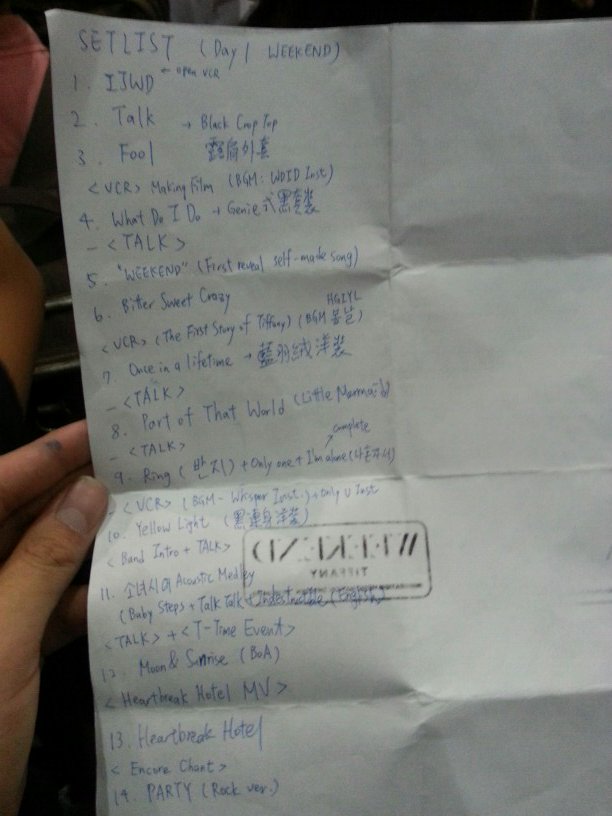 SETLIST (Day 1 WEEKEND)
1. IJWD ← open VCR
2. Talk → Black Crop Top
3. Fool 露肩外套
<VCR> Making Film (BGM: WDID Inst)
4. What Do I Do → Genie式黑套裝
- <TALK>
5. "WEEKEND" (First reveal self-made song)
6. Bitter Sweet Crazy
HGIYL
<VCR> (The First Story of Tiffany) (BGM 봄날)
7. Once in a lifetime → 藍羽絨洋裝
- <TALK>
8. Part of That World (Little Mermaid)
- <TALK>
complete
9. Ring (반지) + Only one + I'm alone (나혼자서)
- <VCR> (BGM - Whisper Inst.) + Only U Inst
10. Yellow Light (黑連身洋裝)
<Band Intro + TALK>
WEEKEND
TIFFANY
11. 소녀시대 Acoustic Medley
(Baby Steps + Talk Talk + Indestructible (English)
<TALK> + <T-Time Event>
12. Moon & Sunrise (BoA)
<Heartbreak Hotel MV>
13. Heartbreak Hotel
<Encore Chant>
14. PARTY (Rock ver.)